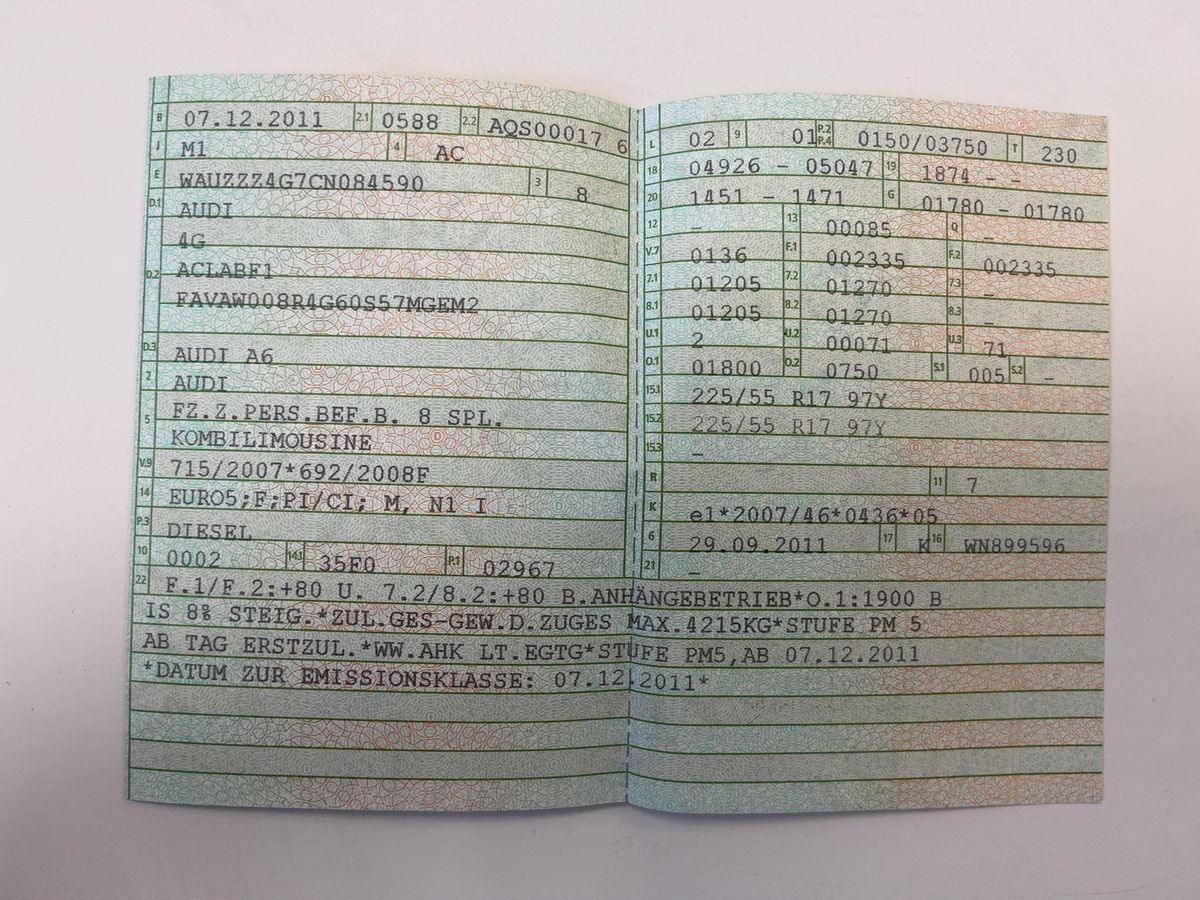 B 07.12.2011 2.1 0588 2.2 AQS00017 6
J M1 4 AC
E WAUZZZ4G7CN084590 3 8
D.1 AUDI
4G
D.2 ACLABF1
FAVAW008R4G60S57MGEM2
D.3 AUDI A6
2 AUDI
5 FZ.Z.PERS.BEF.B. 8 SPL.
KOMBILIMOUSINE
V.9 715/2007*692/2008F
14 EURO5;F;PI/CI; M, N1 I
P.3 DIESEL
10 0002 14.1 35F0 P.1 02967
L 02 9 01 P.2 P.4 0150/03750 T 230
18 04926 - 05047 19 1874 - -
20 1451 - 1471 G 01780 - 01780
12 - 13 00085 Q -
V.7 0136 F.1 002335 F.2 002335
7.1 01205 7.2 01270 7.3 -
8.1 01205 8.2 01270 8.3 -
U.1 2 U.2 00071 U.3 71
O.1 01800 O.2 0750 S.1 005 S.2 -
15.1 225/55 R17 97Y
15.2 225/55 R17 97Y
15.3 -
R 11 7
K e1*2007/46*0436*05
6 29.09.2011 17 K 16 WN899596
21 -
22 F.1/F.2:+80 U. 7.2/8.2:+80 B.ANHÄNGEBETRIEB*O.1:1900 B
IS 8% STEIG.*ZUL.GES-GEW.D.ZUGES MAX.4215KG*STUFE PM 5
AB TAG ERSTZUL.*WW.AHK LT.EGTG*STUFE PM5,AB 07.12.2011
*DATUM ZUR EMISSIONSKLASSE: 07.12.2011*